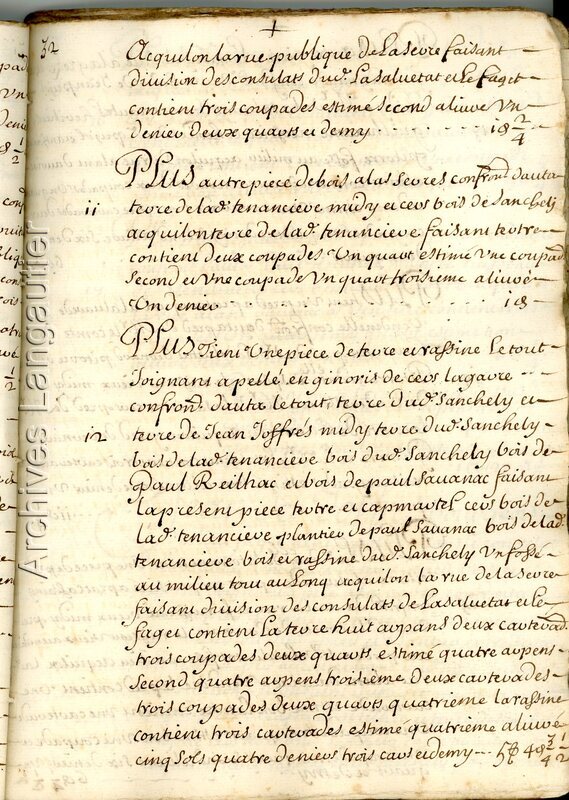 32
Acquilon la rue publique de La serre faisant
division des consulats dud. Lasalvetat et Le faget
contient trois coupades estimé second alivre Un
denier deux quarts et demy 1 8 2/4
PLus autre piece de bois a las serres confrond d'auta
11 terre de lad. tenanciere midy et cers bois de Sanchely
acquilon terre de lad. tenanciere faisant tertre
contient deux coupades Un quart estimé Une coupad
second et Une coupade Un quart troisieme alivré
Un denier 1 8
PLus Tient Une piece de terre et rassine Le tout
Joignans apellé en ginoris de cers lagarre
confrond. d'auta le tout, terre dud. Sanchely et
12 terre de Jean Joffrés midy terre dud. Sanchely
bois de lad. tenanciere bois dud. Sanchely bois de
Paul Reilhac et bois de paul Savanac faisant
la present piece tertre et capmartel cers bois de
lad. tenanciere plantier de paul Savanac bois de lad.
tenanciere bois et rassine dud. Sanchely Un fossé
au milieu tout au Long acquilon la rue de la serre
faisant division des consulats de Lasalvetat et Le
faget contient La terre huit arpans deux carterad.
trois coupades deux quarts estimé quatre arpens
second quatre arpens troisieme deux carterades
trois coupades deux quarts quatrieme la rassine
contient trois carterades estimé quatrieme alivré
cinq sols quatre deniers trois cars et demy
Archives Langautier